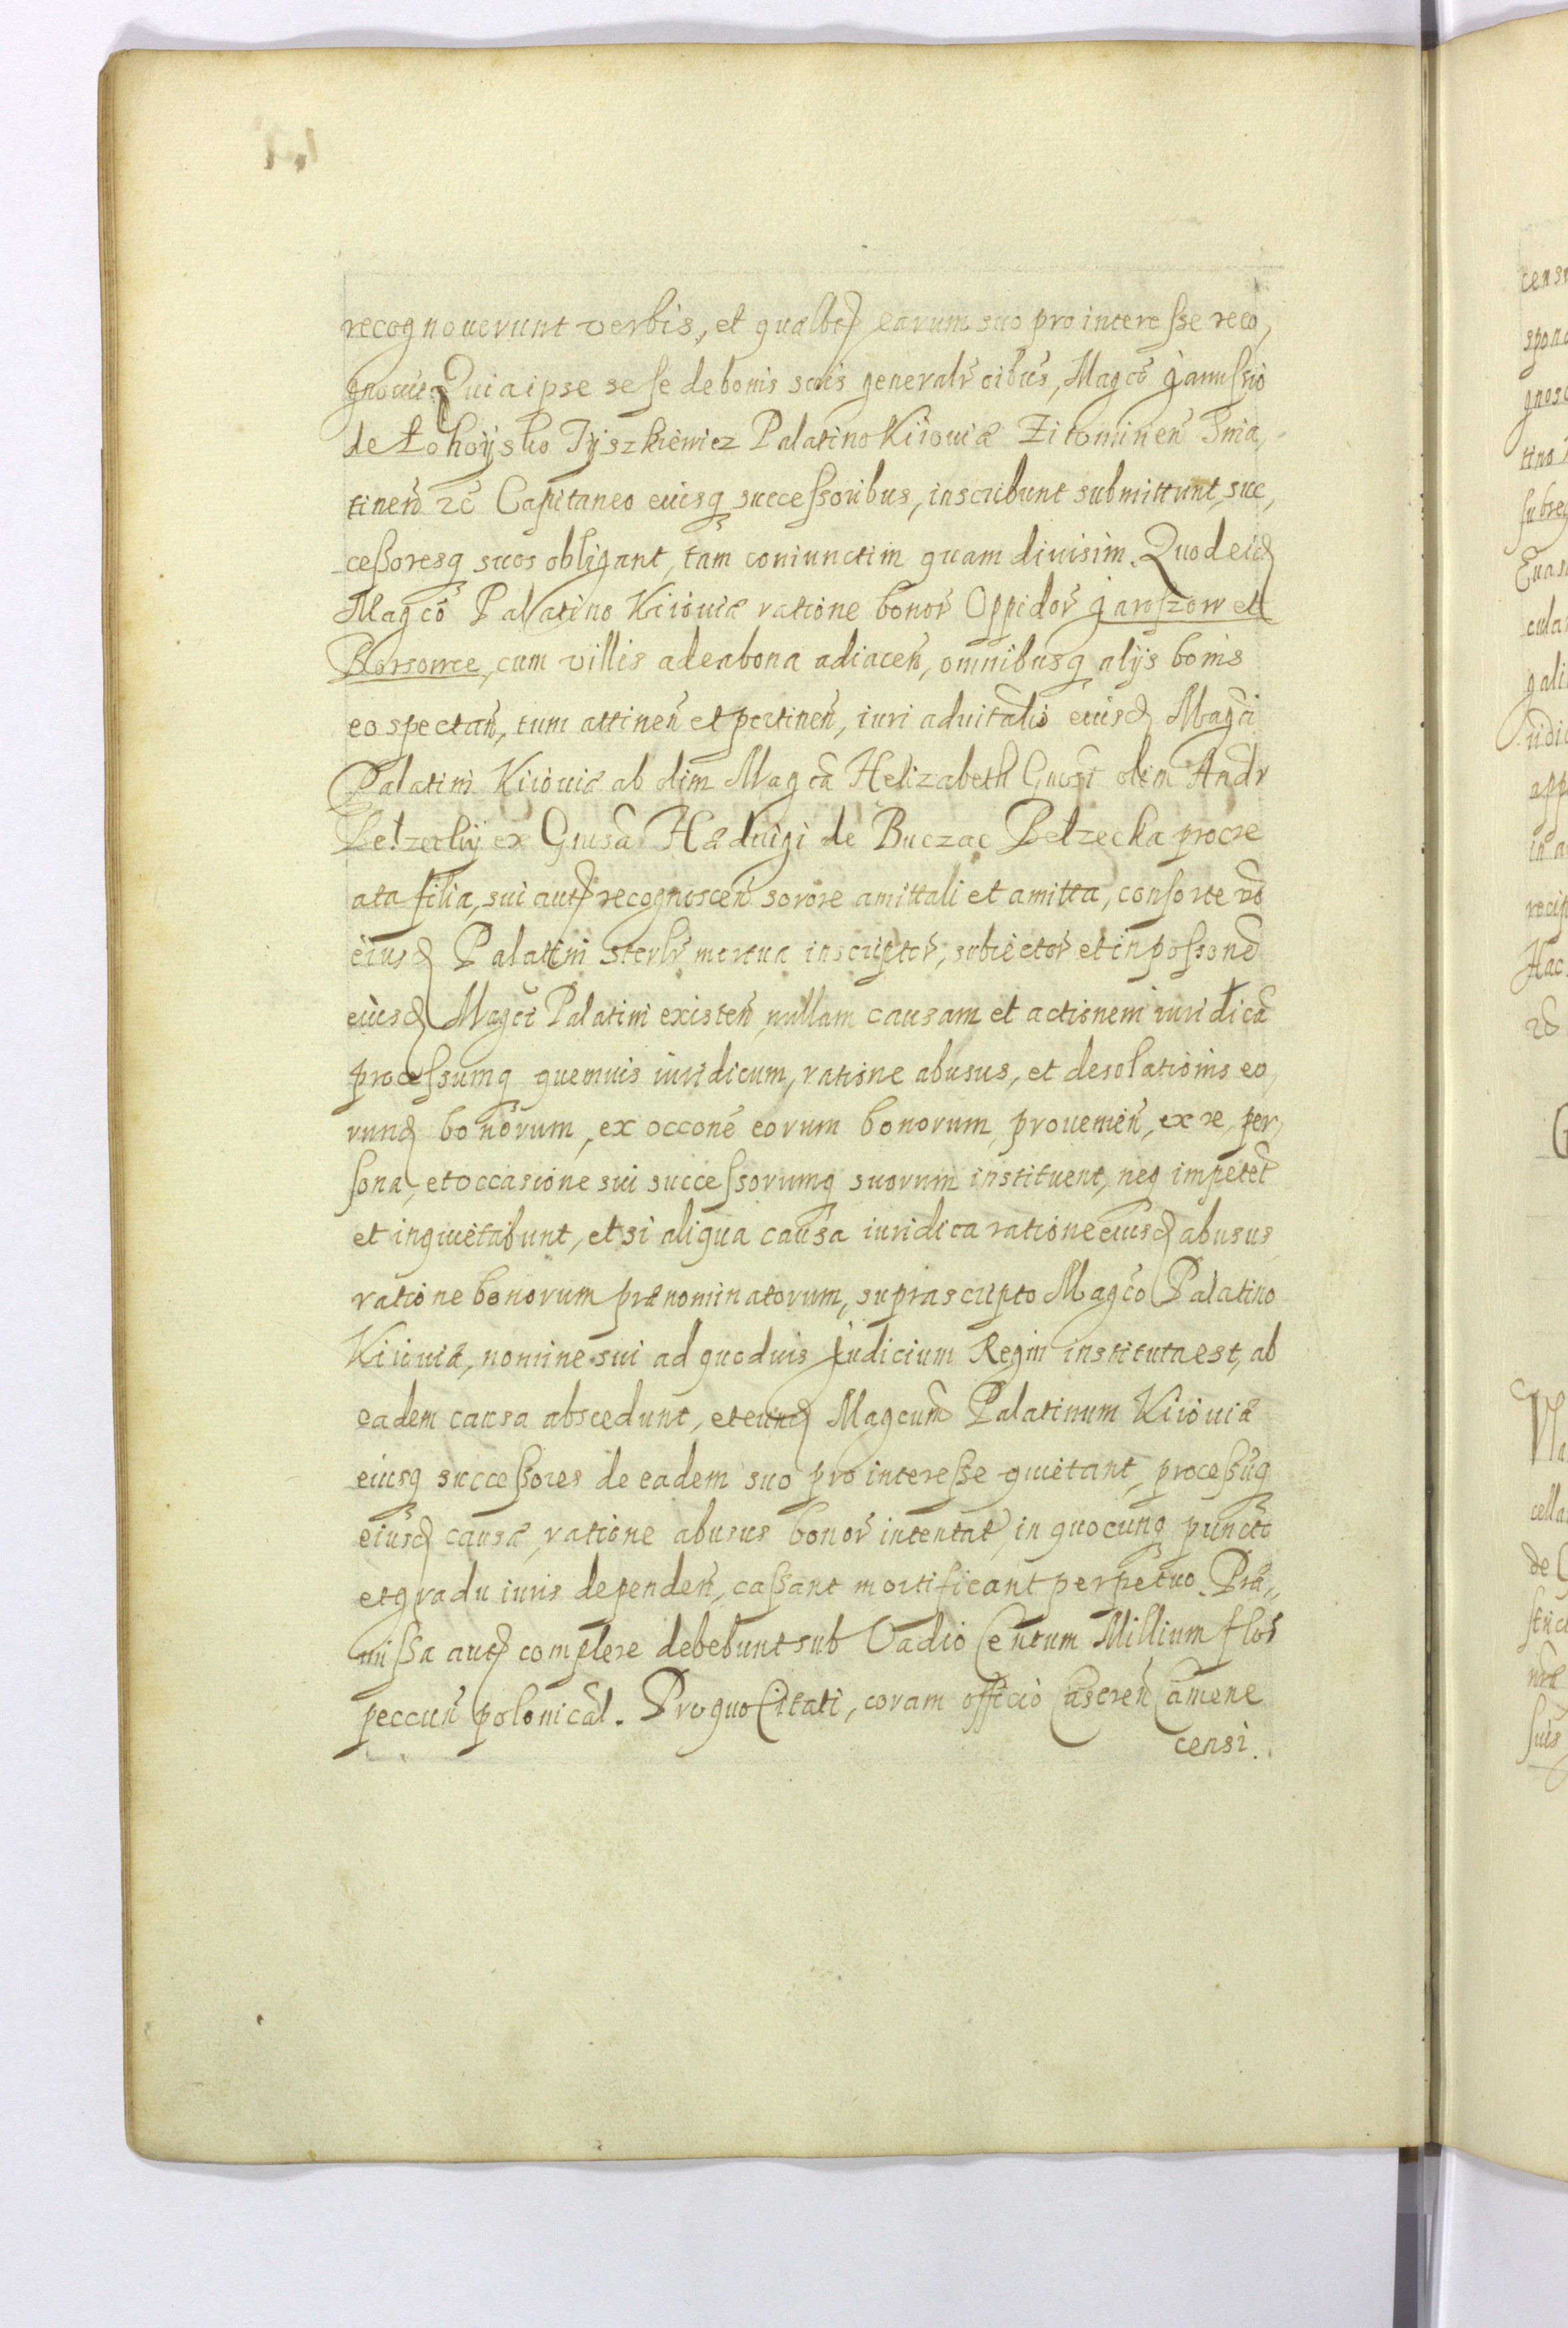 recognouerunt verbis, et qualibet earum suo pro interesse reco,
gnouit Quia ipse se se de bonis suis generalr oibus, Magco Janussio
de Łohoysko Tyszkiewicz Palatino Kiiouiæ Zitominen Snia,
tinen zc Capitaneo eiusq successoribus, inscribunt submittunt, suc,
cessoresq suos obligant, tam coniunctim quam diuisim. Quod eid
Magco Palatino Kiiouiæ ratione bonor Oppidor Jaroszow et
cum villis ad ea bona adiacen, omnibusq alijs bonis
eo spectan, tum attinen et pertinen, iuri aduitalio eiusd Magci
Palatini Kiiouiæ ab olim Magca Helizabeth Gnosi olim Andr
Belzeckij ex Gnosa Hæduigi de Buczac Belzecka procre
ata filia, sui aut recognoscen sorore amittali et amitta, consorte vo
eiusd Palatini sterilr mortua inscriptor, subiector et in possone
eiusd Magci Palatini existen, nullam causam et actionem iuridica
processumq quemuis iuridicum, ratione abusus, et desolationis eo,
rund bonorum, ex occone eorum bonorum prouenien, ex re, per,
sona, et occasione sui successorumq suorum instituent, neq impetet
et inquietabunt, et si aliqua causa iuridica ratione eiusd abusus
ratione bonorum prænominatorum, suprascripto Magco Palatino
Kiiouiæ, nomine sui ad quoduis Judicium Regni instituta est, ab
eadem causa abscedunt, et eund Magcum Palatinum Kiiouiæ
eiusq successores de eadem suo pro interesse quietant, processuq
eiusd causæ, ratione abusus bonor intentat, in quocunq puncto
et gradu iuris dependen, cassant mortificant perpetuo. Præ,,
missa aut complere debebunt sub Vadio Centum Millium flor
peccun polonical. Pro quo Citati, coram officio Castren Camene
censi.